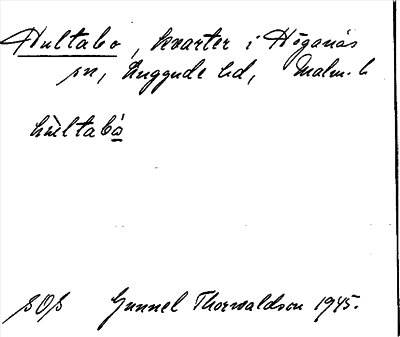 Hultabo, kvarter i Höganäs
sn, Luggude hd, Malm. l
hùltabó
SOS Gunnel Thorwaldson 1945.